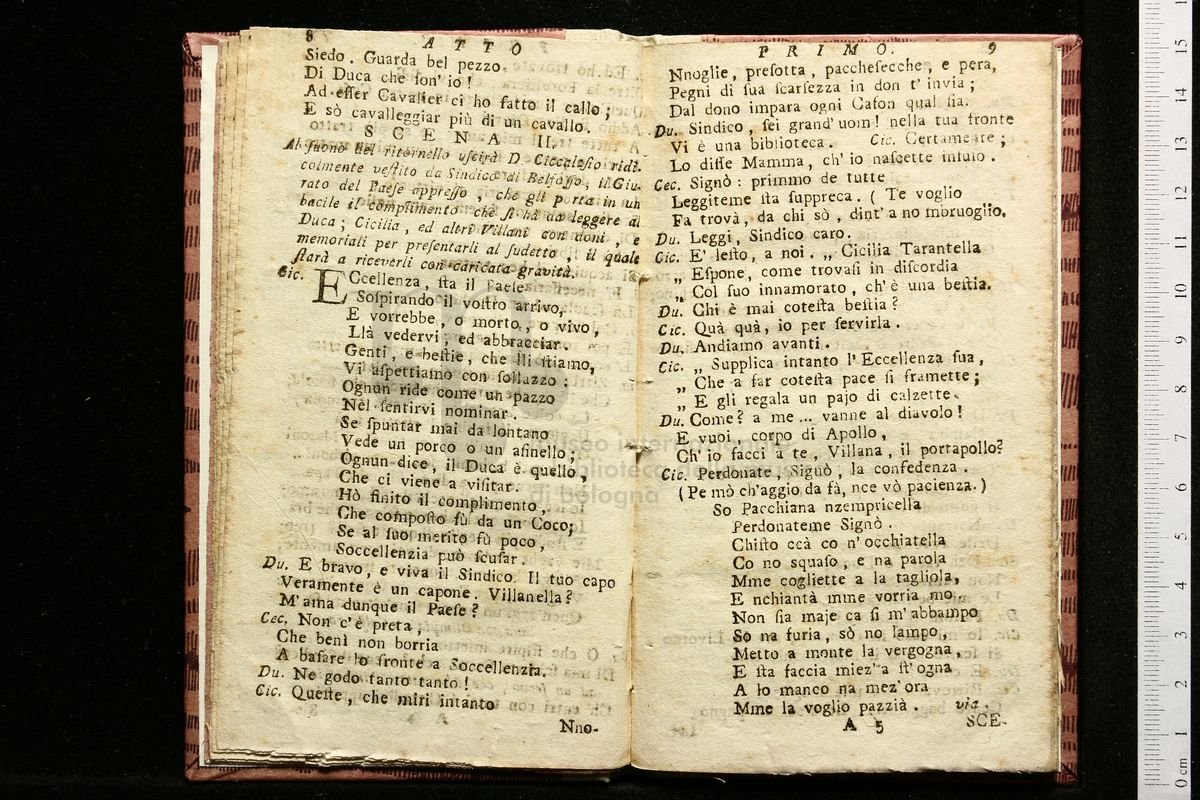 8 ATTO
Siedo. Guarda bel pezzo
Di Duca che ſon' io!
Ad eſſer Cavalier ci ho fatto il callo;
E sò cavalleggiar più di un cavallo.
SCENA II.
Al ſuono del ritornello uſcirà D. Ciccaleſio ridi-
colmente veſtito da Sindico di Belfoſſo, il Giu-
rato del Paeſe appreſſo, che gli porta in un
bacile il complimento che ſi hà da leggere al
Duca; Cicilia, ed altri Villani con doni, e
memoriali per preſentarli al ſudetto, il quale
ſtarà a riceverli con caricata gravità.
Cic. ECcellenza, ſta il Paeſe
Soſpirando il voſtro arrivo,
E vorrebbe, o morto, o vivo,
Llà vedervi, ed abbracciar.
Genti, e beſtie, che lli ſtiamo,
Vi aſpettiamo con ſollazzo:
Ognun ride come un pazzo
Nèl ſentirvi nominar.
Se ſpuntar mai da lontano
Vede un porco o un aſinello;
Ognun dice, il Duca è quello,
Che ci viene a viſitar.
Hò finito il complimento,
Che compoſto fù da un Coco;
Se al ſuo merito fù poco,
Soccellenzia può ſcuſar.
Du. E bravo, e viva il Sindico. Il tuo capo
Veramente è un capone. Villanella?
M'ama dunque il Paeſe?
Cec. Non c'è preta,
Che benì non borria
A baſare lo fronte a Soccellenzia.
Du. Ne godo tanto tanto!
Cic. Queſte, che miri intanto
Nno-
PRIMO. 9
Nnoglie, preſotta, paccheſecche, e pera,
Pegni di ſua ſcarſezza in don t'invia;
Dal dono impara ogni Cafon qual ſia.
Du. Sindico, ſei grand'uom! nella tua fronte
Vi è una biblioteca. Cic. Certamente;
Lo diſſe Mamma, ch'io naſcette inſuio.
Cec. Signò: primmo de tutte
Leggiteme ſta ſuppreca. (Te voglio
Fa trovà, da chi sò, dint'a no mbruoglio.
Du. Leggi, Sindico caro.
Cic. E' leſto, a noi. „ Cicilia Tarantella
„ Eſpone, come trovaſi in diſcordia
„ Col ſuo innamorato, ch'è una beſtia.
Du. Chi è mai coteſta beſtia?
Cic. Quà quà, io per ſervirla.
Du. Andiamo avanti.
Cic. „ Supplica intanto l'Eccellenza ſua,
„ Che a far coteſta pace ſi framette;
„ E gli regala un pajo di calzette.
Du. Come? a me ... vanne al diavolo!
E vuoi, corpo di Apollo,
Ch'io facci a te, Villana, il portapollo?
Cic. Perdonate, Signò, la confedenza.
(Pe mò ch'aggio da fà, nce vò pacienza.)
So Pacchiana nzempricella
Perdonateme Signò.
Chiſto ccà co n'occhiatella
Co no squaſo, e na parola
Mme cogliette a la tagliola,
E nchiantà mme vorria mo.
Non ſia maje ca ſi m'abbampo
So na furia, sò no lampo,
Metto a monte la vergogna,
E ſta faccia miez'a ſt'ogna
A lo manco na mez'ora
Mme la voglio pazzià. via.
A 5 SCE-